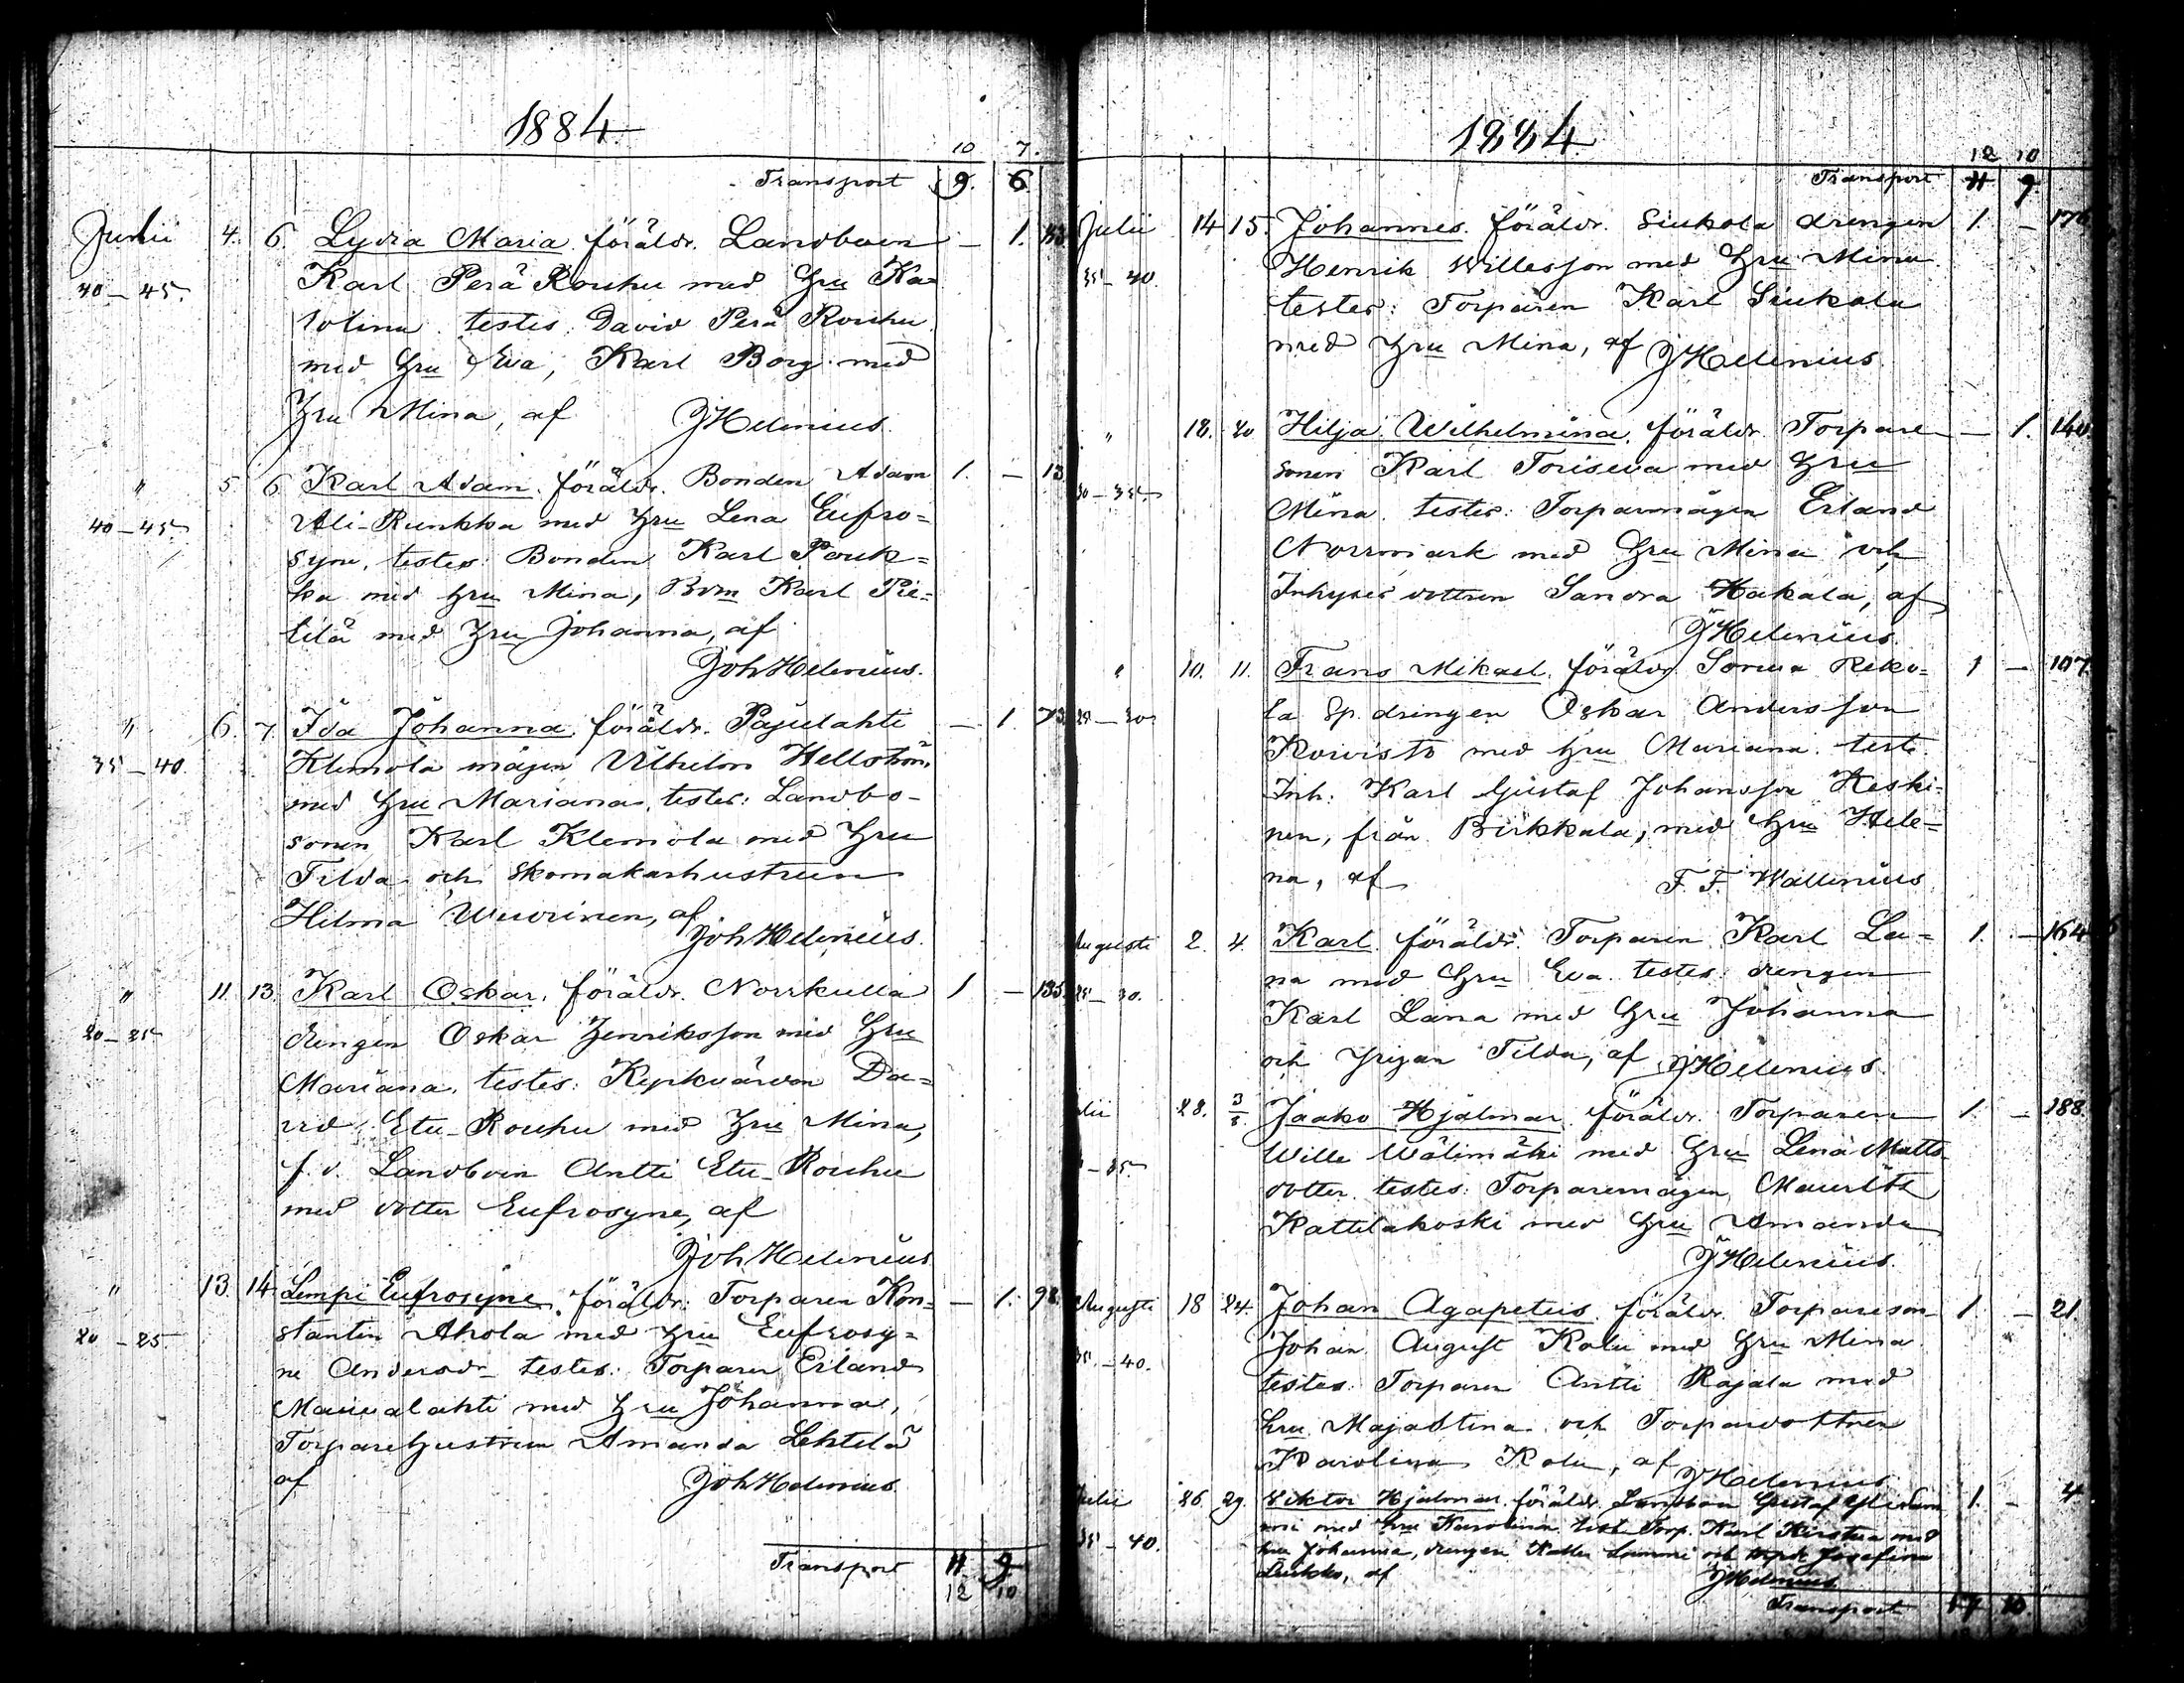 1884
10 7.
Transport 9. 6
Junii 4. 6. Lydia Maria. föräldr. Landboen — 1.
40–45. Karl Perä Rouhu med hru Ka=
rolina. testes. David Perä Rouhu
med hru Eva, Karl Borg med
hru Mina, af JHelenius.
" 5 6 Karl Adam. föräldr. Bonden Adam 1. — 13
40–45. Ali-Runkka med hru Lena Eufro=
syne, testes: Bonden Karl Pouk=
ka med hru Mina, Bdn Karl Pie=
tilä med hru Johanna, af
Joh Helenius.
" 6. 7. Ida Johanna. föräldr. Pajulahti — 1.
35–40. Klemola mågen Vilhelm Hellström
med hru Mariana, testes: Landbo-
sonen Karl Klemola med hru
Tilda och skomakarhustrun
Helma Wuorinen, af
Joh Helenius.
" 11. 13. Karl Oskar. föräldr. Norrkulla 1 — 135.
20–25 drengen Oskar Henriksson med hru
Mariana. testes: Kyrkvärden Da=
vid Etu-Rouhu med hru Mina,
f.d. Landboen Antti Etu-Rouhu
med dotter Eufrosyne, af
Joh Helenius
" 13. 14. Lempi Eufrosyne. föräldr: Torparen Kon= — 1. 98.
20–25 stantin Ahola med hru Eufrosy=
ne Andersdr testes: Torparen Erland
med hru Johanna,
Torparehustrun Amanda Lehtelä
af Joh Helenius
Transport 11 9
12 10
1884
12 10
Transport 11 9
Julii 14 15. Johannes. föräldr. Siukola drengen 1. — 176
35–40. Henrik Willesson med hru Mina
testes: Torparen Karl Siukola
med hru Mina, af JHelenius.
" 18. 20 Hilja Wilhelmina. föräldr. Torpare — 1. 140.
30–35 sonen Karl Toriseva med hru
Mina. testes: Torparmågen Erland
Norrmark med hru Mina och
Inhyses dottren Sandra Hakala, af
JHelenius.
" 10. 11. Frans Mikael. föräldr. Sorva Reko= 1 — 107.
la Sp. drengen Oskar Andersson
Koivisto med hru Mariana. test.
Inh: Karl Gustaf Johansson Keski=
nen, från Birkkala, med hru Hele=
na, af F. F. Wallenius
Augusti 2. 4. Karl. föräldr. Torparen Karl La= 1. — 164
25–30. na med hru Eva. testes: drengen
Karl Lana med hru Johanna
och pigan Tilda, af JHelenius.
28. 3/8 Jaako Hjalmar. föräldr. Torparen 1. — 188.
Wille Wälimäki med hru Lena Matts
dotter. testes: Torparemågen Maurits
Kattilakoski med hru Amanda
JHelenius.
Augusti 18 24. Johan Agapetus. föräldr. Torpareson 1. — 21.
35–40. Johan August Kolu med hru Mina
testes: Torparen Antti Rajala med
hru Maja Stina och Torpardottren
Karolina Kolu, af JHelenius
Julii 26. 29. Viktor Hjalmar. föräldr. Landboen Gustaf 1. — 4
35–40. med hru Karolina. test. Torp. Karl med
hru Johanna, drengen Kalle och Josefina
af JHelenius
Transport 17 10.